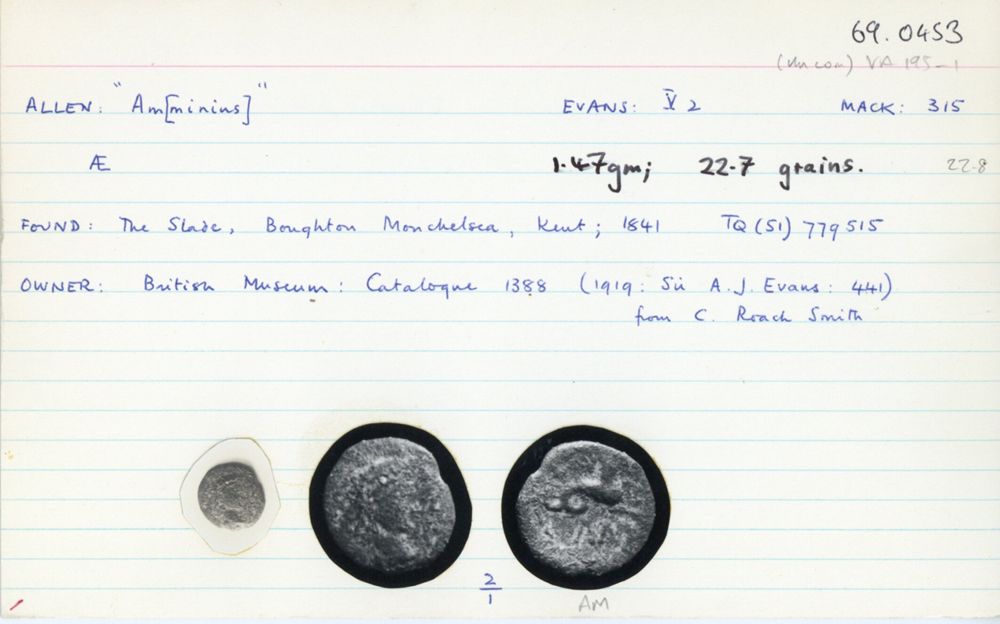 69.0453
(Uncom) VA 195-1
ALLEN: "Am[minius]" EVANS: V 2 MACK: 315
Æ 1.47gm; 22.7 grains. 22.8
FOUND: The Slade, Boughton Monchelsea, Kent; 1841 TQ (51) 779515
OWNER: British Museum: Catalogue 1388 (1919: Sir A.J. Evans: 441)
from C. Roach Smith
2
1
AM